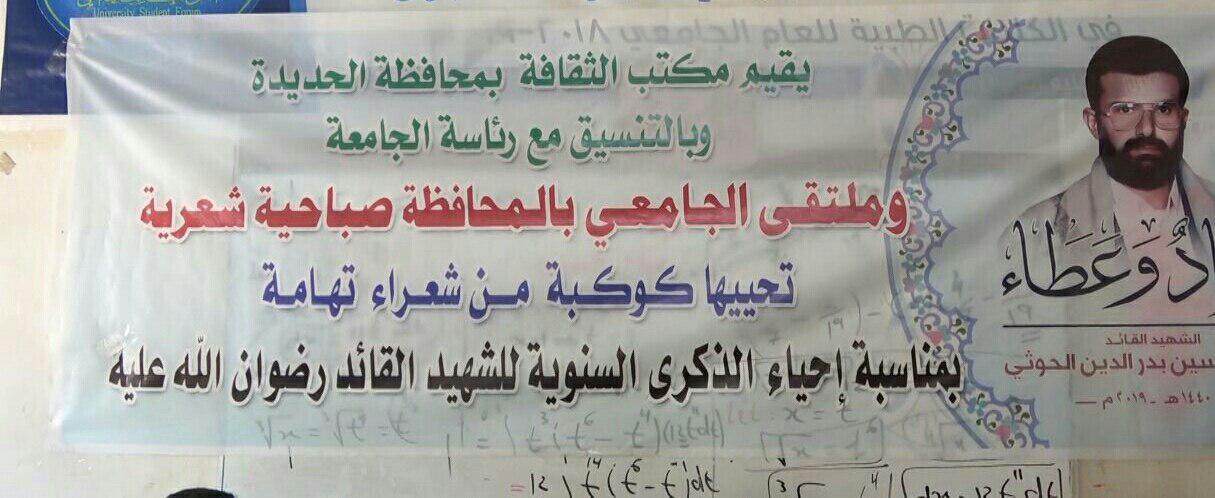 University Student Forum
يقيم مكتب الثقافة بمحافظة الحديدة
وبالتنسيق مع رئاسة الجامعة
وملتقى الجامعي بالمحافظة صباحية شعرية
تحييها كوكبة من شعراء تهامة
بمناسبة إحياء الذكرى السنوية للشهيد القائد رضوان الله عليه
وَعَطَاء
الشهيد القائد
سين بدر الدين الحوثي
١٤٤٠هـ - ٢٠١٩م
الطبية للعام الجامعي ٢٠١٨